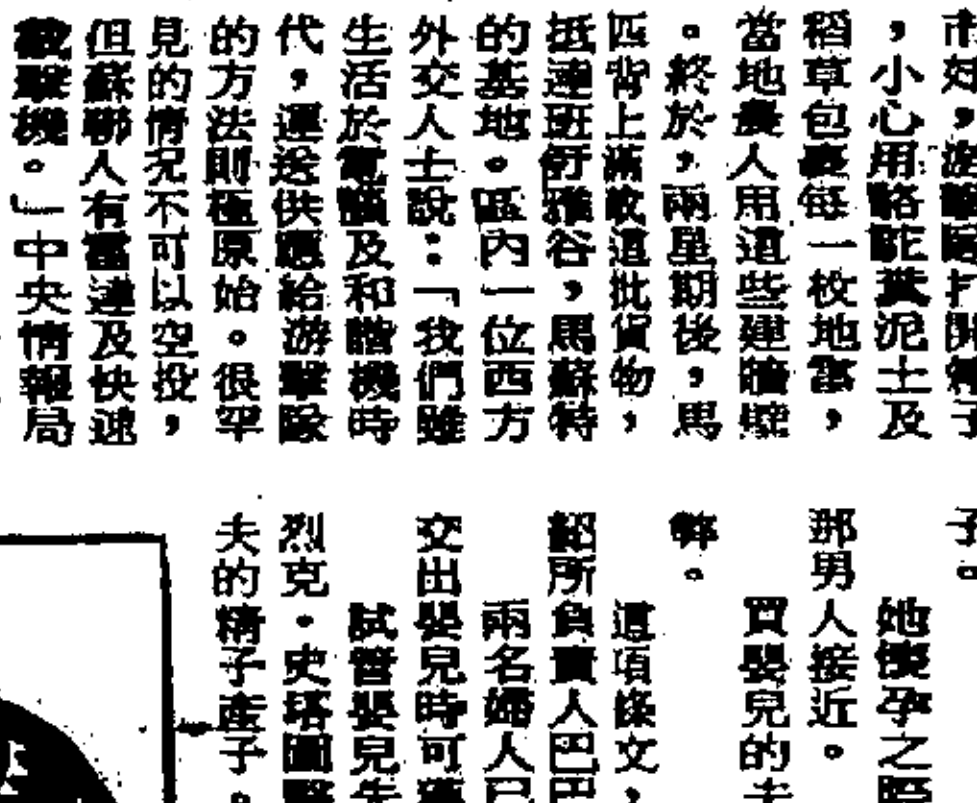 ，小心用駱駝糞泥土及
稻草包裹每一枚地雷，
當地農人用這些建牆壁
。終於，兩星期後，馬
匹背上滿載這批貨物，
抵達班舒雅谷，馬蘇特
的基地。區內一位西方
外交人士說：「我們雖
生活於電腦及和諧機時
代，運送供應給游擊隊
的方法則極原始。很罕
見的情況不可以空投，
但蘇聯人有雷達及快速
截擊機。」中央情報局
子。
她懷孕之
那男人接近。
買嬰兒的夫
弊。
這項條文，
紹所負責人巴巴
兩名婦人已
交出嬰兒時可獲
試管嬰兒先
烈克·史塔圖醫
夫的精子產子。